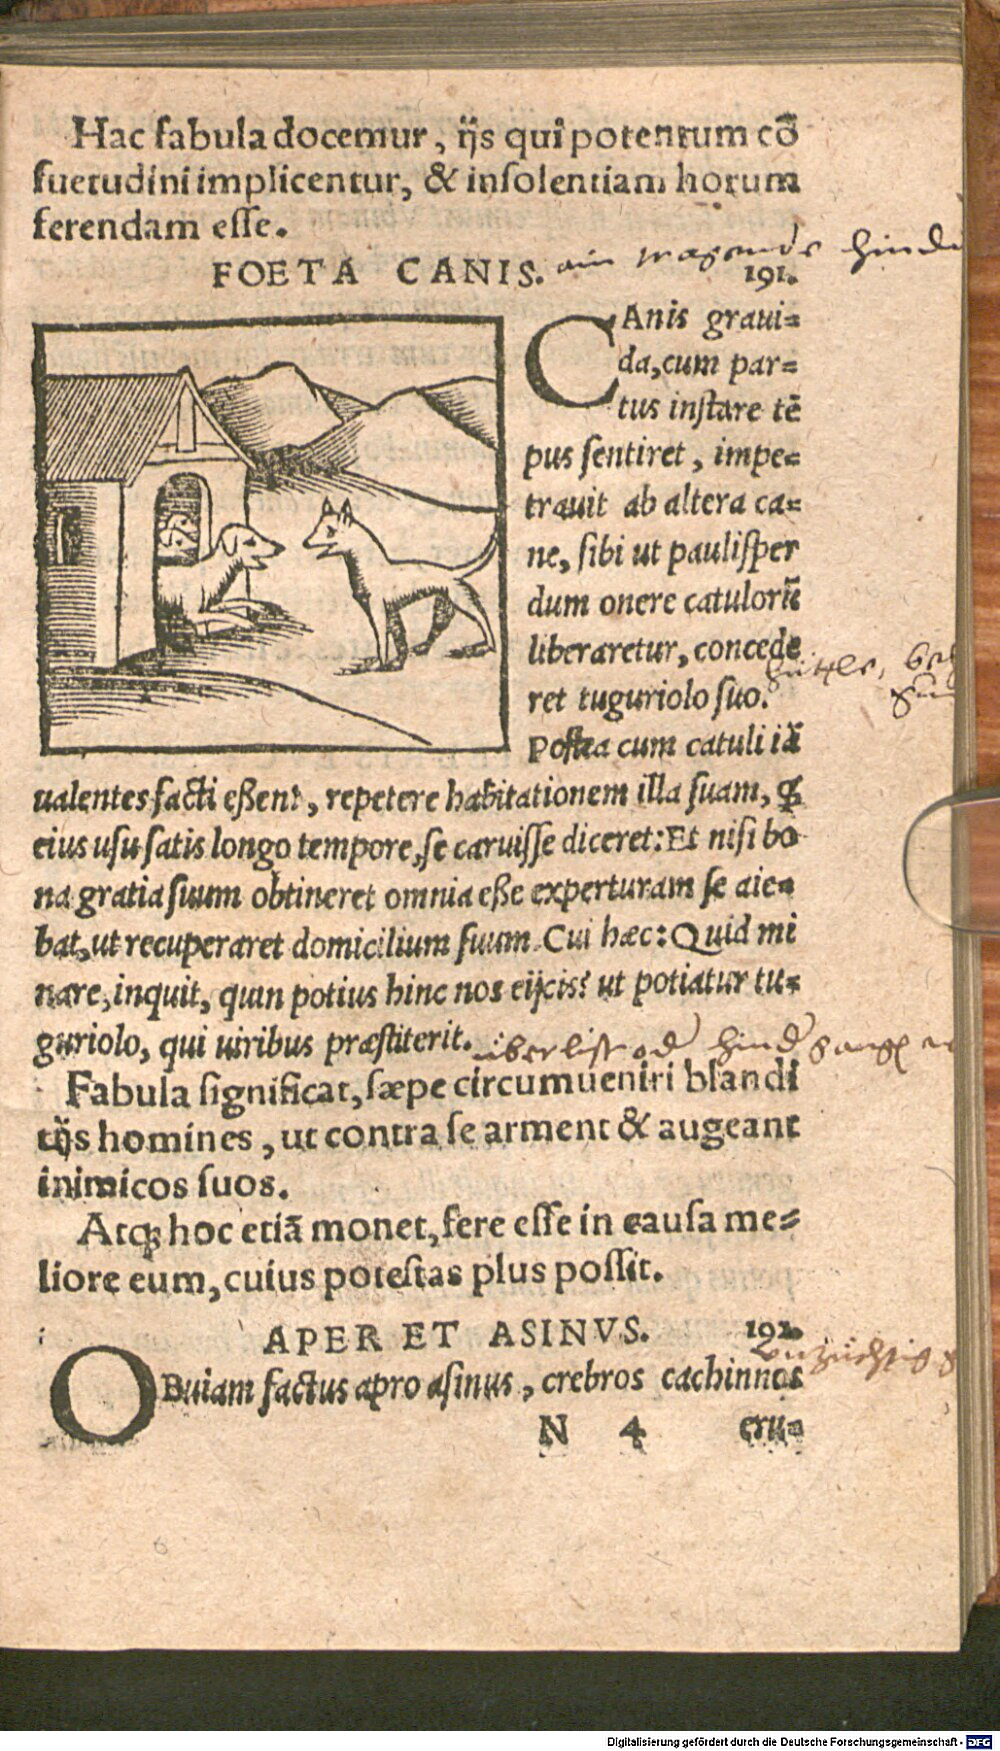 Hac fabula docemur, ijs qui potentum cō
suetudini implicentur, & insolentiam horum
ferendam esse.
FOETA CANIS. 191.
ain tragende hindi
CAnis graui=
da, cum par=
tus instare tē
pus sentiret, impe=
trauit ab altera ca=
ne, sibi ut paulisper
dum onere catulorū
liberaretur, concede
ret tuguriolo suo.
Postea cum catuli iā
ualentes facti eßent, repetere habitationem illa suam, &
eius usu satis longo tempore, se caruisse diceret: Et nisi bo
na gratia suum obtineret omnia eße experturam se aie=
bat, ut recuperaret domicilium suum. Cui hæc: Quid mi
nare, inquit, quin potius hinc nos eijcis? ut potiatur tu=
guriolo, qui uiribus præstiterit.
überlist od hind
Fabula significat, sæpe circumueniri blandi
tijs homines, ut contra se arment & augeant
inimicos suos.
Atq; hoc etiā monet, fere esse in causa me=
liore eum, cuius potestas plus possit.
APER ET ASINVS. 192.
unzüchtig
OBuiam factus apro asinus, crebros cachinnos
N 4 eru=
Digitalisierung gefördert durch die Deutsche Forschungsgemeinschaft - DFG